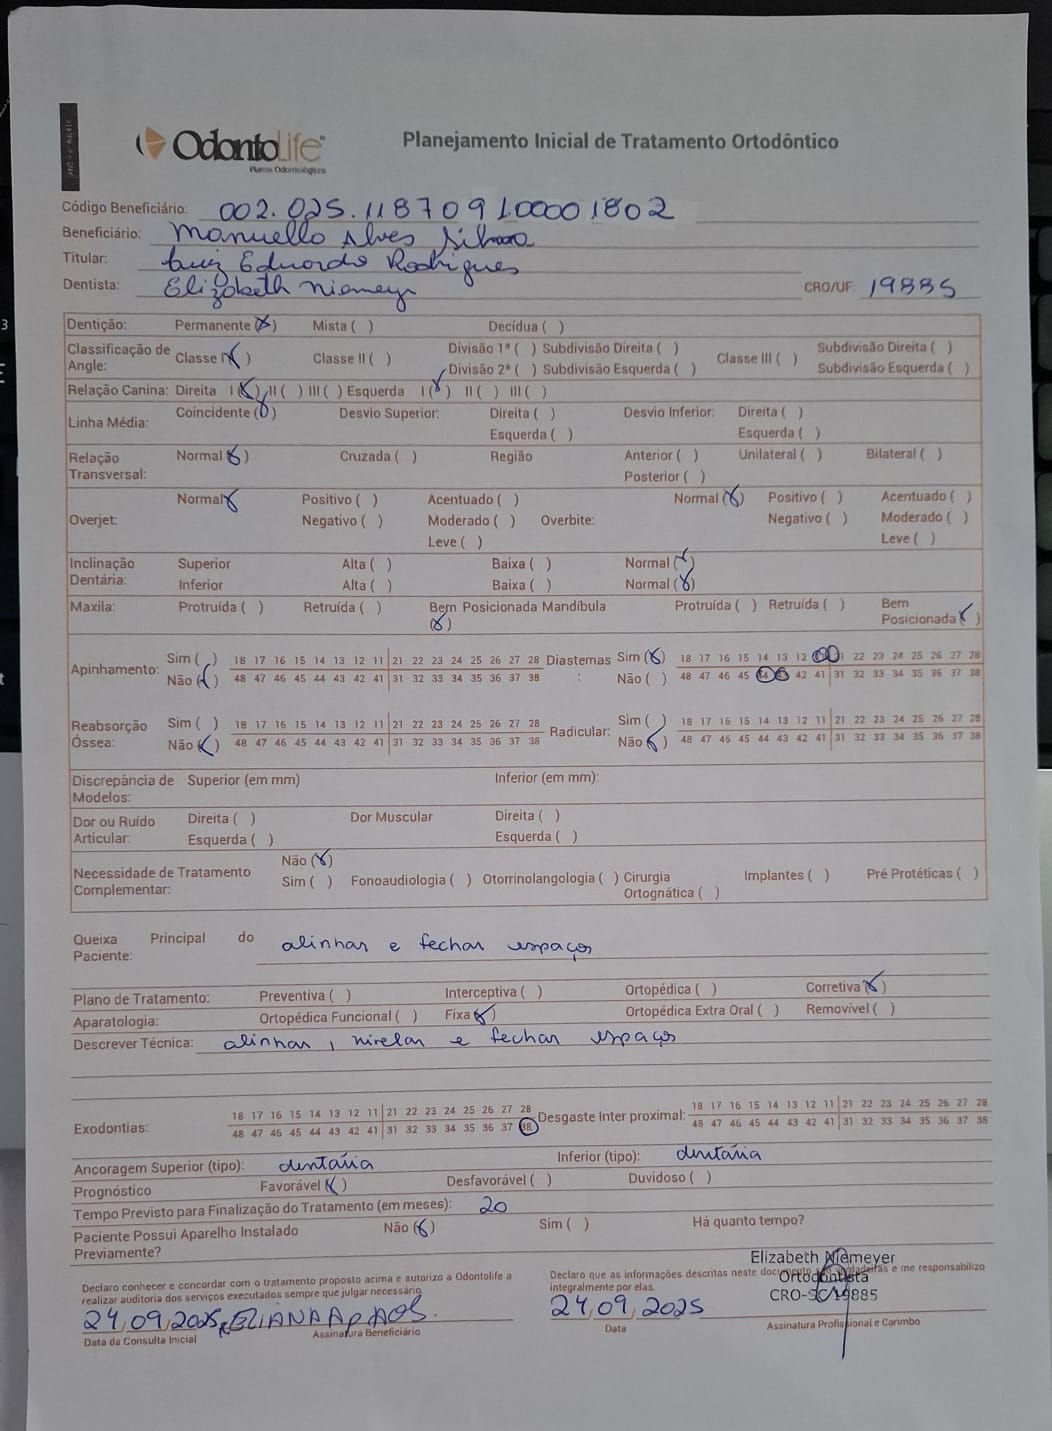 OdontoLife®
Planos Odontológicos
Planejamento Inicial de Tratamento Ortodôntico
Código Beneficiário: 002.025.1187091.00001802
Beneficiário: Manuello Alves
Titular: Luiz Eduardo Rodrigues
Dentista: Elizabeth Niemeyr CRO/UF: 19885
Dentição: Permanente (x) Mista ( ) Decídua ( )
Classificação de Angle: Classe I (x) Classe II ( ) Divisão 1ª ( ) Subdivisão Direita ( ) Classe III ( ) Subdivisão Direita ( )
Divisão 2ª ( ) Subdivisão Esquerda ( ) Subdivisão Esquerda ( )
Relação Canina: Direita I (x) II ( ) III ( ) Esquerda I (x) II ( ) III ( )
Linha Média: Coincidente (x) Desvio Superior: Direita ( ) Desvio Inferior: Direita ( )
Esquerda ( ) Esquerda ( )
Relação Transversal: Normal (x) Cruzada ( ) Região Anterior ( ) Unilateral ( ) Bilateral ( )
Posterior ( )
Normal (x) Positivo ( ) Acentuado ( ) Normal (x) Positivo ( ) Acentuado ( )
Overjet: Negativo ( ) Moderado ( ) Overbite: Negativo ( ) Moderado ( )
Leve ( ) Leve ( )
Inclinação Superior Alta ( ) Baixa ( ) Normal (x)
Dentária: Inferior Alta ( ) Baixa ( ) Normal (x)
Maxila: Protruída ( ) Retruída ( ) Bem Posicionada (x) Mandíbula Protruída ( ) Retruída ( ) Bem Posicionada (x)
Apinhamento: Sim ( ) 18 17 16 15 14 13 12 11 21 22 23 24 25 26 27 28 Diastemas: Sim (x) 18 17 16 15 14 13 12 11 21 22 23 24 25 26 27 28
Não (x) 48 47 46 45 44 43 42 41 31 32 33 34 35 36 37 38 Não ( ) 48 47 46 45 44 43 42 41 31 32 33 34 35 36 37 38
Reabsorção Óssea: Sim ( ) 18 17 16 15 14 13 12 11 21 22 23 24 25 26 27 28 Radicular: Sim ( ) 18 17 16 15 14 13 12 11 21 22 23 24 25 26 27 28
Não (x) 48 47 46 45 44 43 42 41 31 32 33 34 35 36 37 38 Não (x) 48 47 46 45 44 43 42 41 31 32 33 34 35 36 37 38
Discrepância de Modelos: Superior (em mm) Inferior (em mm):
Dor ou Ruído Direita ( ) Dor Muscular Direita ( )
Articular: Esquerda ( ) Esquerda ( )
Não (x)
Necessidade de Tratamento Complementar: Sim ( ) Fonoaudiologia ( ) Otorrinolangologia ( ) Cirurgia Ortognática ( ) Implantes ( ) Pré Protéticas ( )
Queixa Principal do Paciente: alinhar e fechar espaços
Plano de Tratamento: Preventiva ( ) Interceptiva ( ) Ortopédica ( ) Corretiva (x)
Aparatologia: Ortopédica Funcional ( ) Fixa (x) Ortopédica Extra Oral ( ) Removível ( )
Descrever Técnica: alinhar, nivelar e fechar espaços
Exodontias: 18 17 16 15 14 13 12 11 21 22 23 24 25 26 27 28 Desgaste Inter proximal: 18 17 16 15 14 13 12 11 21 22 23 24 25 26 27 28
48 47 46 45 44 43 42 41 31 32 33 34 35 36 37 38 48 47 46 45 44 43 42 41 31 32 33 34 35 36 37 38
Ancoragem Superior (tipo): dentária Inferior (tipo): dentária
Prognóstico Favorável (x) Desfavorável ( ) Duvidoso ( )
Tempo Previsto para Finalização do Tratamento (em meses): 20
Paciente Possui Aparelho Instalado Previamente? Não (x) Sim ( ) Há quanto tempo?
Declaro conhecer e concordar com o tratamento proposto acima e autorizo a Odontolife a
realizar auditoria dos serviços executados sempre que julgar necessário.
24/09/2025 ELIANA
Data da Consulta Inicial Assinatura Beneficiário
Declaro que as informações descritas neste documento são verdadeiras e me responsabilizo
integralmente por elas.
Elizabeth Niemeyer
Ortodontista
CRO-SC/19885
24/09/2025
Data Assinatura Profissional e Carimbo